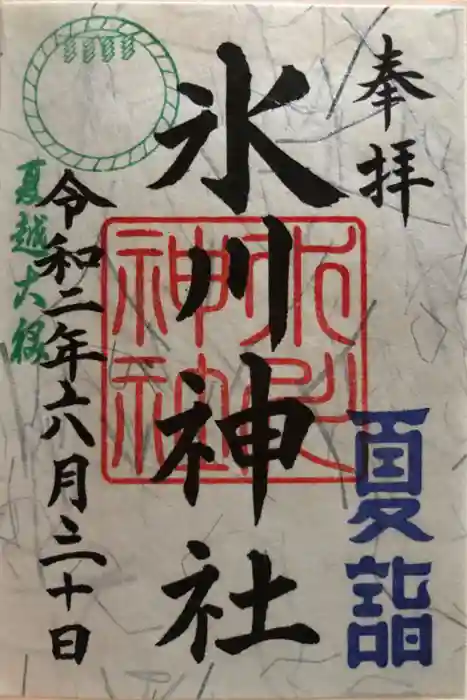 奉拝
夏詣
氷川神社
氷川
神社
令和二年六月三十日
夏越大祓